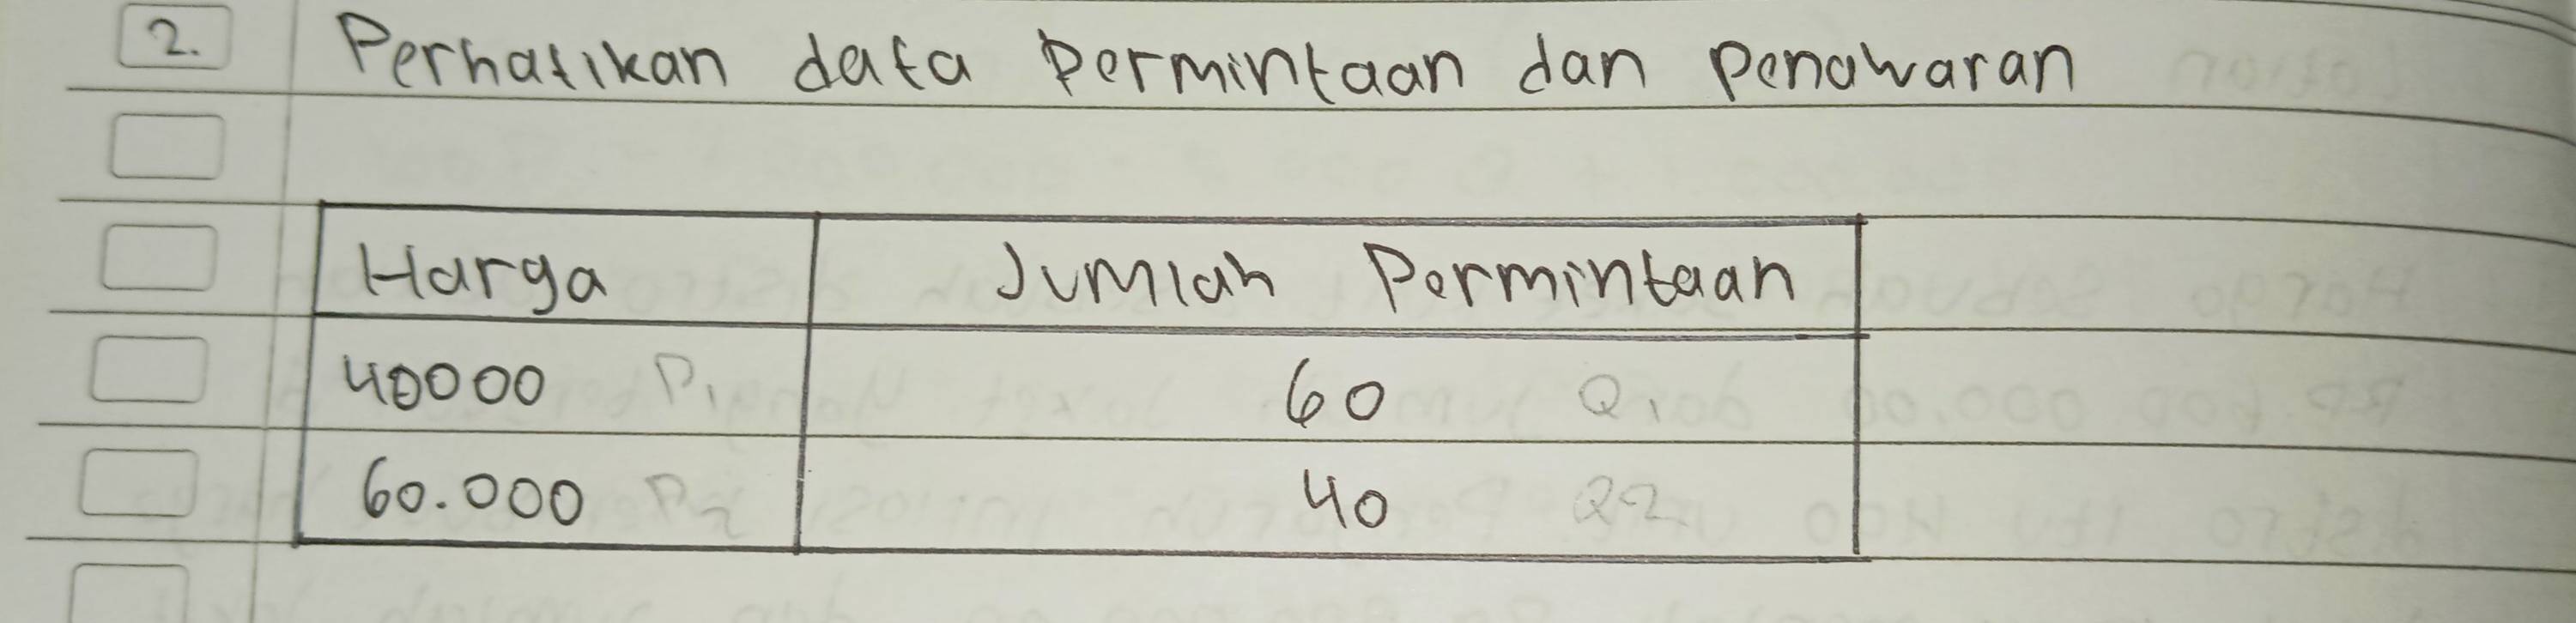 2. Perhatikan data Permintaan dan Penawaran
Harga Jumlah Permintaan
40000 P1 60 Q1
60.000 P2 40 Q2